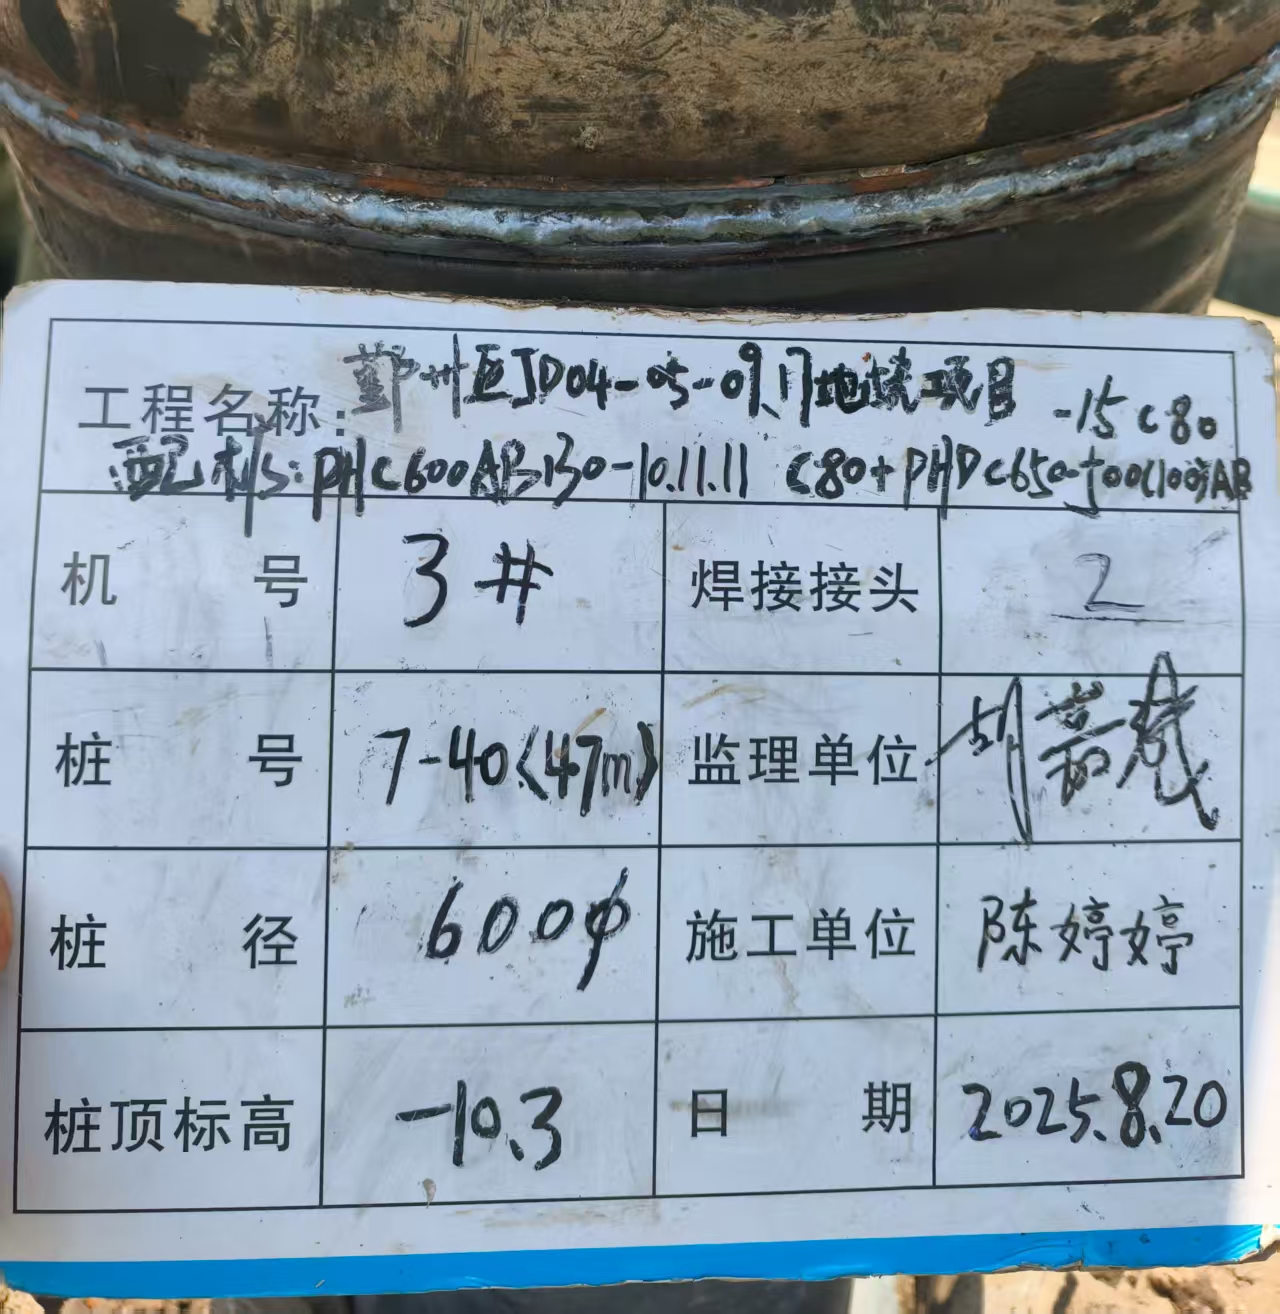 工程名称: 鄞州区JD04-05-09.17地块项目
-15 C80
配桩: PHC600AB130-10.11.11 C80+PHDC650-500(100)AB
机 号 3# 焊接接头 2
桩 号 7-40(47m) 监理单位 胡
桩 径 600ϕ 施工单位 陈婷婷
桩顶标高 -10.3 日 期 2025.8.20